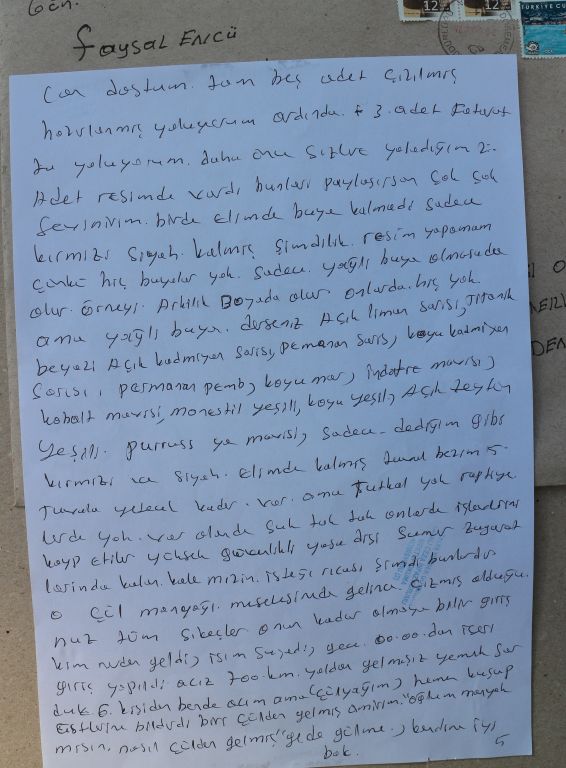 Gön.
faysal ENCÜ
12
12
TÜRKİYE CU
Can dostum. tam beş adet çizilmiş
hazırlanmış yoluyorum ardında. + 3. adet
da yoluyorum. daha önce sizlere yoladığım 2.
Adet resimde vardı bunları paylaşırsan çok çok
sevinirim. birde Elimde boya kalmadı sadece
kırmızı siyah. kalmış şimdilik. resim yapamam
çünkü hiç boyalar yok. Sadece. yağlı boya olmasada
olur. örneği. Arkilik Boyada olur. onlarda. hiç yok
ama yağlı boya. derseniz Açık limon sarısı, titanik
beyazı Açık kadmiyen sarısı, permanan sarıs, koyu kadmiyen
Sarısı, permanan pemb, koyu mor, mavisi,
kobalt mavisi, monestil yeşili, koyu yeşil, Açık zeytin
yeşili. purruss ya mavisi, sadece dediğim gibi
kırmızı ve siyah. Elimde kalmış bezim 5.
Tuvala yetecek kadar. var. ama Tutkal yok
lerde yok. var olanda tak tuk onlarda işlevlerini
kayp etiler yüksek güvenlikli yasa dışı
larında kalan. kale mizin. isteği ricası şimdi bunlardır
o gül manyağı. meselesinde gelince çizmiş olduğu.
nuz tüm onun kadar olmaya bilir giriş
kim nerden geldi, isim soyadı, gece. 00.00. dan içeri
giriş yapıldı acız 700 km. yoldan gelmişiz yemek sor
duk 6. kişiden bende acım ama (gülyağım) hemen
bildirdi biri gülden gelmiş amirim. "oğlum manyak
mısın. nasıl gülden gelmiş" gülme., kendine iyi
bak.
5